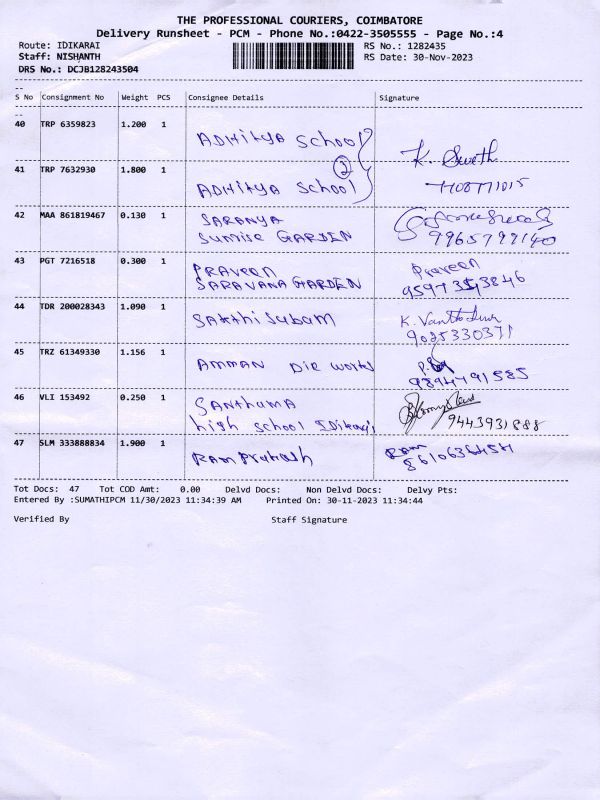 THE PROFESSIONAL COURIERS, COIMBATORE
Delivery Runsheet - PCM - Phone No.:0422-3505555 - Page No.:4
Route: IDIKARAI RS No.: 1282435
Staff: NISHANTH RS Date: 30-Nov-2023
DRS No.: DCJB128243504
S No Consignment No Weight PCS Consignee Details Signature
40 TRP 6359823 1.200 1 ADHitYA School
K. Swath
41 TRP 7632930 1.800 1 ADHitYA School
2
42 MAA 861819467 0.130 1 SARANYA
Sunrise GARDEN 9965799140
43 PGT 7216518 0.300 1 PRAVEEN Praveen
SARAVANA GARDEN
44 TDR 200028343 1.090 1 Sakthi Subam K.
9025330371
45 TRZ 61349330 1.156 1 AMMAN Die works
9894791585
46 VLI 153492 0.250 1 SANthAMA
high school Idikarai 9443931888
47 SLM 333888834 1.900 1 RAM Prakash RAM
Tot Docs: 47 Tot COD Amt: 0.00 Delvd Docs: Non Delvd Docs: Delvy Pts:
Entered By :SUMATHIPCM 11/30/2023 11:34:39 AM Printed On: 30-11-2023 11:34:44
Verified By Staff Signature